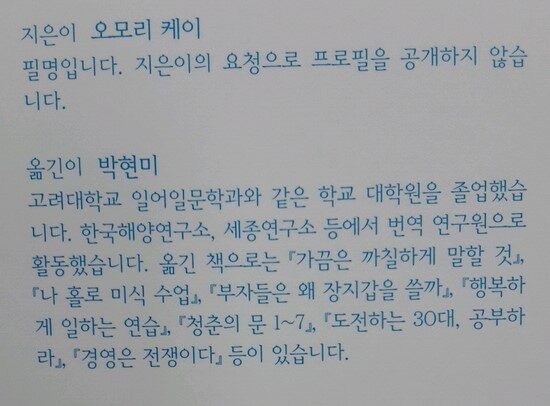 지은이 오모리 케이
필명입니다. 지은이의 요청으로 프로필을 공개하지 않습
니다.
옮긴이 박현미
고려대학교 일어일문학과와 같은 학교 대학원을 졸업했습
니다. 한국해양연구소, 세종연구소 등에서 번역 연구원으로
활동했습니다. 옮긴 책으로는 『가끔은 까칠하게 말할 것』,
『나 홀로 미식 수업』, 『부자들은 왜 장지갑을 쓸까』, 『행복하
게 일하는 연습』, 『청춘의 문 1~7』, 『도전하는 30대, 공부하
라』, 『경영은 전쟁이다』 등이 있습니다.